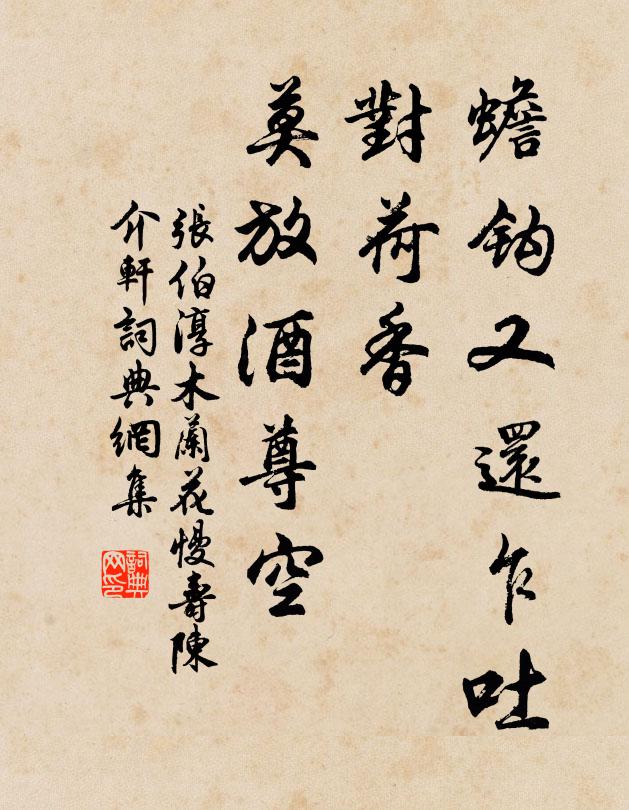 蟾鈎又還乍吐
對荷香
莫放酒尊空
張伯淳木蘭花慢壽陳
介軒詞典網集
詞典
网印